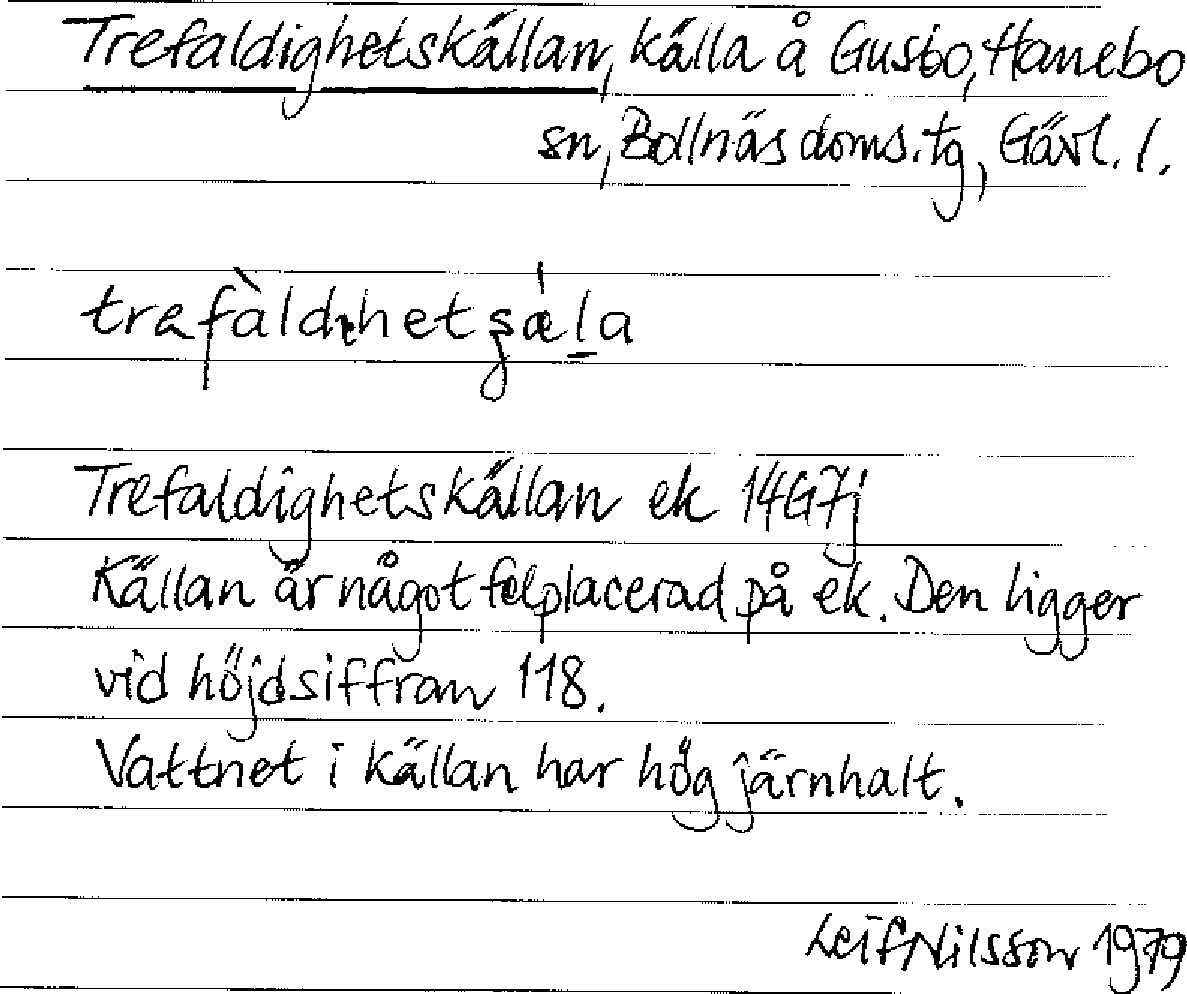 Trefaldighetskällan, källa å Gusbo, Hanebo
sn, Bollnäs doms. tg, Gävl. l.
Trefaldighetskällan ek 14G7j
Källan är något felplacerad på ek. Den ligger
vid höjdsiffran 118.
Vattnet i källan har hög järnhalt.
Leif Nilsson 1979